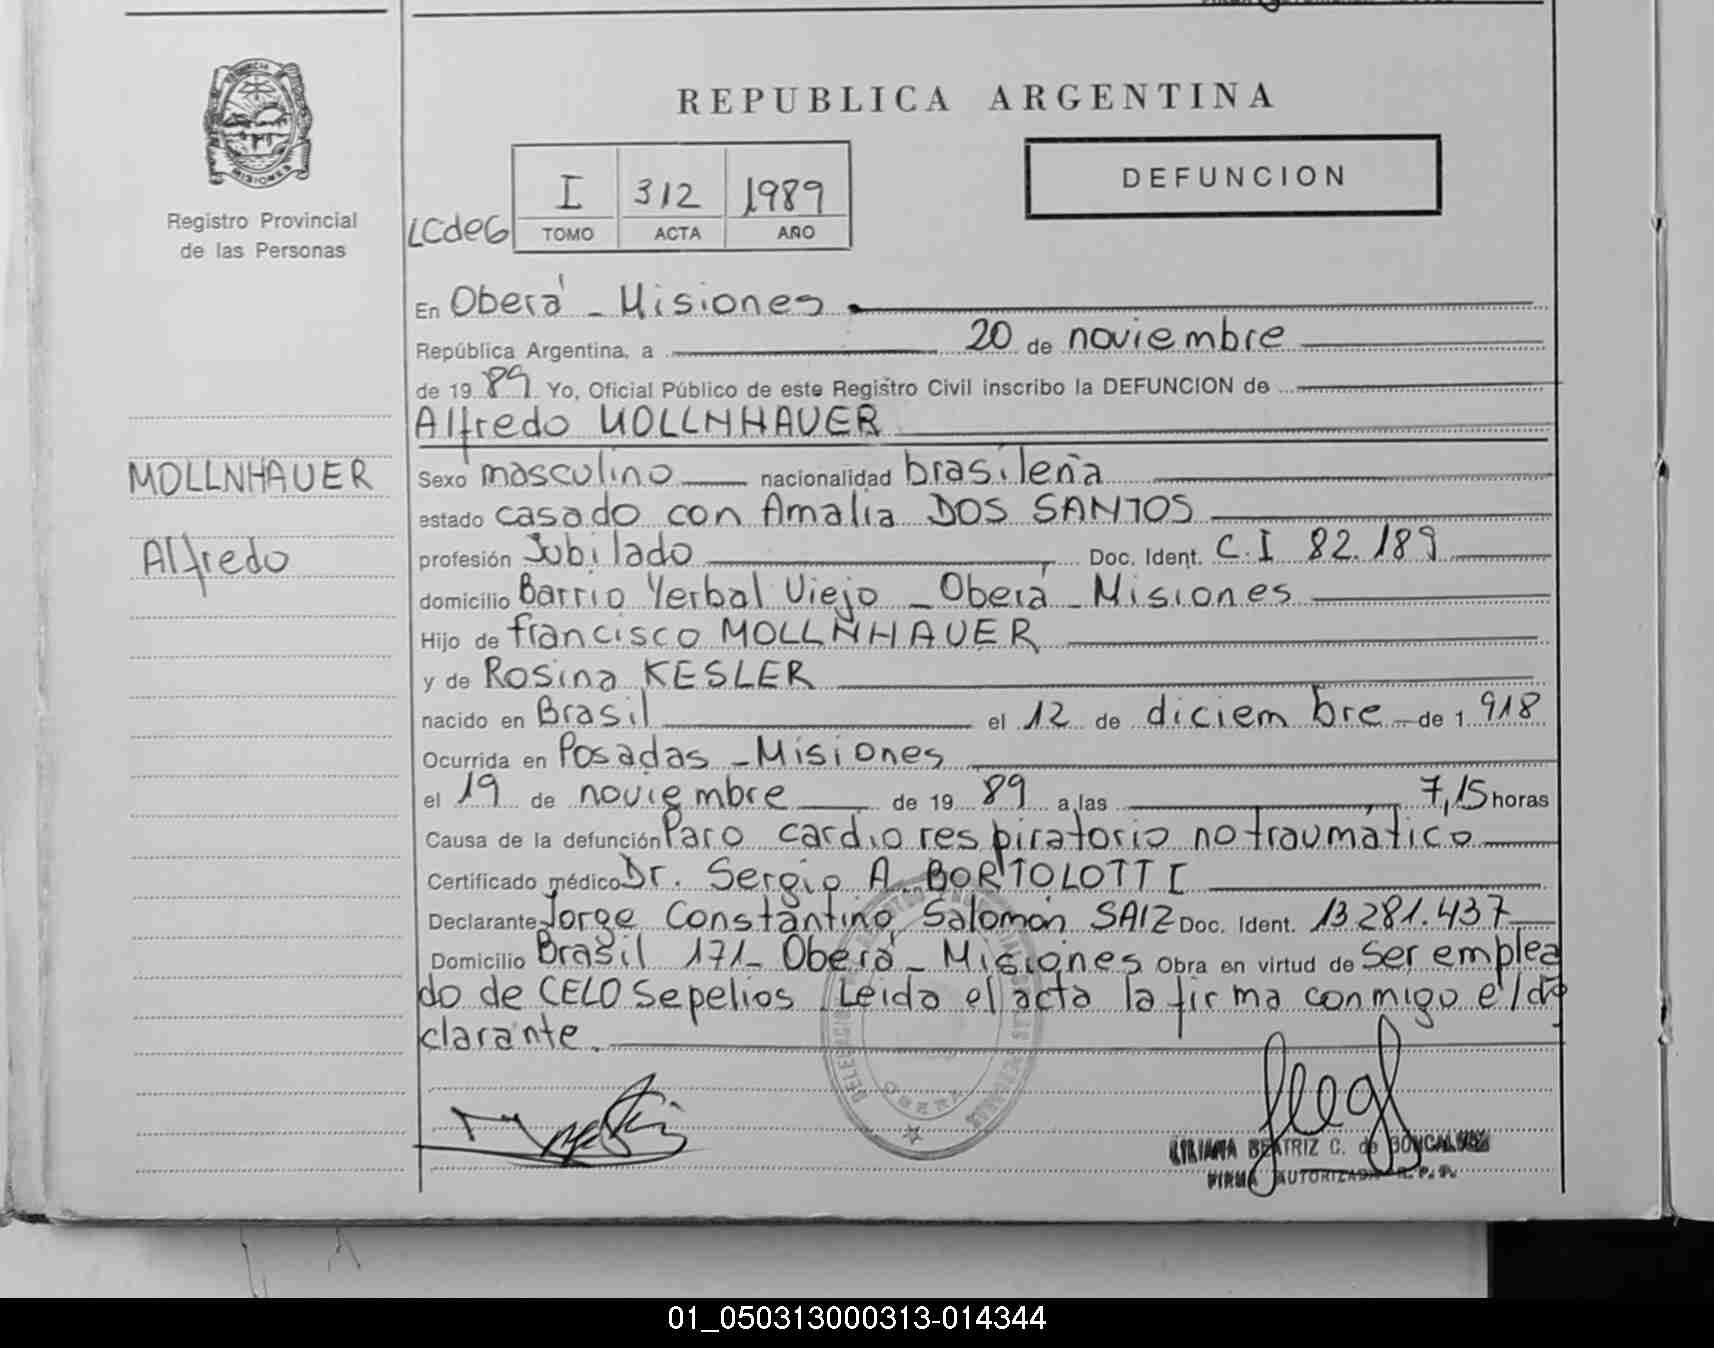 REPUBLICA ARGENTINA
PROVINCIA DE
MISIONES
Registro Provincial
de las Personas
DEFUNCION
LCdeG
I 312 1989
TOMO ACTA AÑO
En Oberá - Misiones
República Argentina, a 20 de noviembre
de 1989 Yo, Oficial Público de este Registro Civil inscribo la DEFUNCION de
Alfredo MOLLNHAUER
MOLLNHAUER
Alfredo
Sexo masculino nacionalidad brasileña
estado casado con Amalia DOS SANTOS
profesión Jubilado Doc. Ident. C.I 82.189
domicilio Barrio Yerbal Viejo - Oberá - Misiones
Hijo de francisco MOLLNHAUER
y de Rosina KESLER
nacido en Brasil el 12 de diciembre de 1.918
Ocurrida en Posadas - Misiones
el 19 de noviembre de 1989 a las 7,15 horas
Causa de la defunción Paro cardiorespiratorio no traumático
Certificado médico Dr. Sergio A. BORTOLOTTI
Declarante Jorge Constantino Salomón SAIZ Doc. Ident. 13.281.437
Domicilio Brasil 171- Oberá - Misiones Obra en virtud de ser emplea
do de CELO Sepelios. Leida el acta la firma conmigo el de
clarante.
OBERA
LILIANA BEATRIZ C. de GONCALVEZ
FIRMA AUTORIZADA R. P. P.
01_050313000313-014344